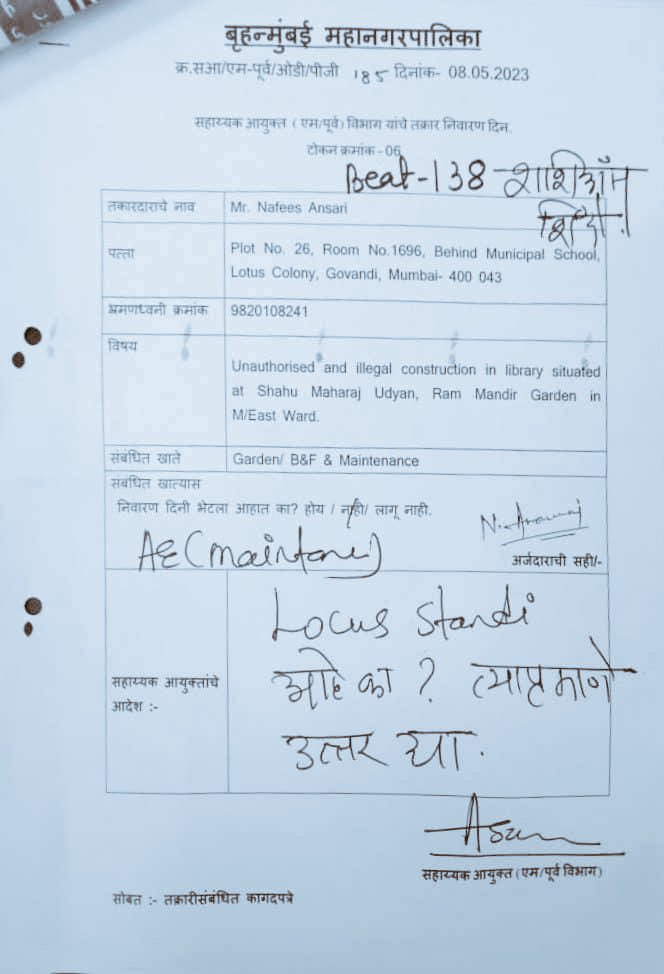 बृहन्मुंबई महानगरपालिका
क्र.सआ/एम-पूर्व/ओडी/पीजी 185 दिनांक- 08.05.2023
सहाय्यक आयुक्त ( एम/पूर्व) विभाग यांचे तक्रार निवारण दिन.
टोकन क्रमांक - 06
Beat-138
तकारदाराचे नाव Mr. Nafees Ansari
पत्ता Plot No. 26, Room No.1696, Behind Municipal School,
Lotus Colony, Govandi, Mumbai- 400 043
भ्रमणध्वनी क्रमांक 9820108241
विषय
Unauthorised and illegal construction in library situated
at Shahu Maharaj Udyan, Ram Mandir Garden in
M/East Ward.
संबंधित खाते Garden/ B&F & Maintenance
संबंधित खात्यास
निवारण दिनी भेटला आहात का? होय / नाही/ लागू नाही.
AE (
अर्जदाराची सही/-
Locus Standi
आहे का? त्याप्रमाणे
सहाय्यक आयुक्तांचे
आदेश :-
उत्तर द्या.
सहाय्यक आयुक्त (एम/पूर्व विभाग)
सोबत :- तक्रारीसंबंधित कागदपत्रे